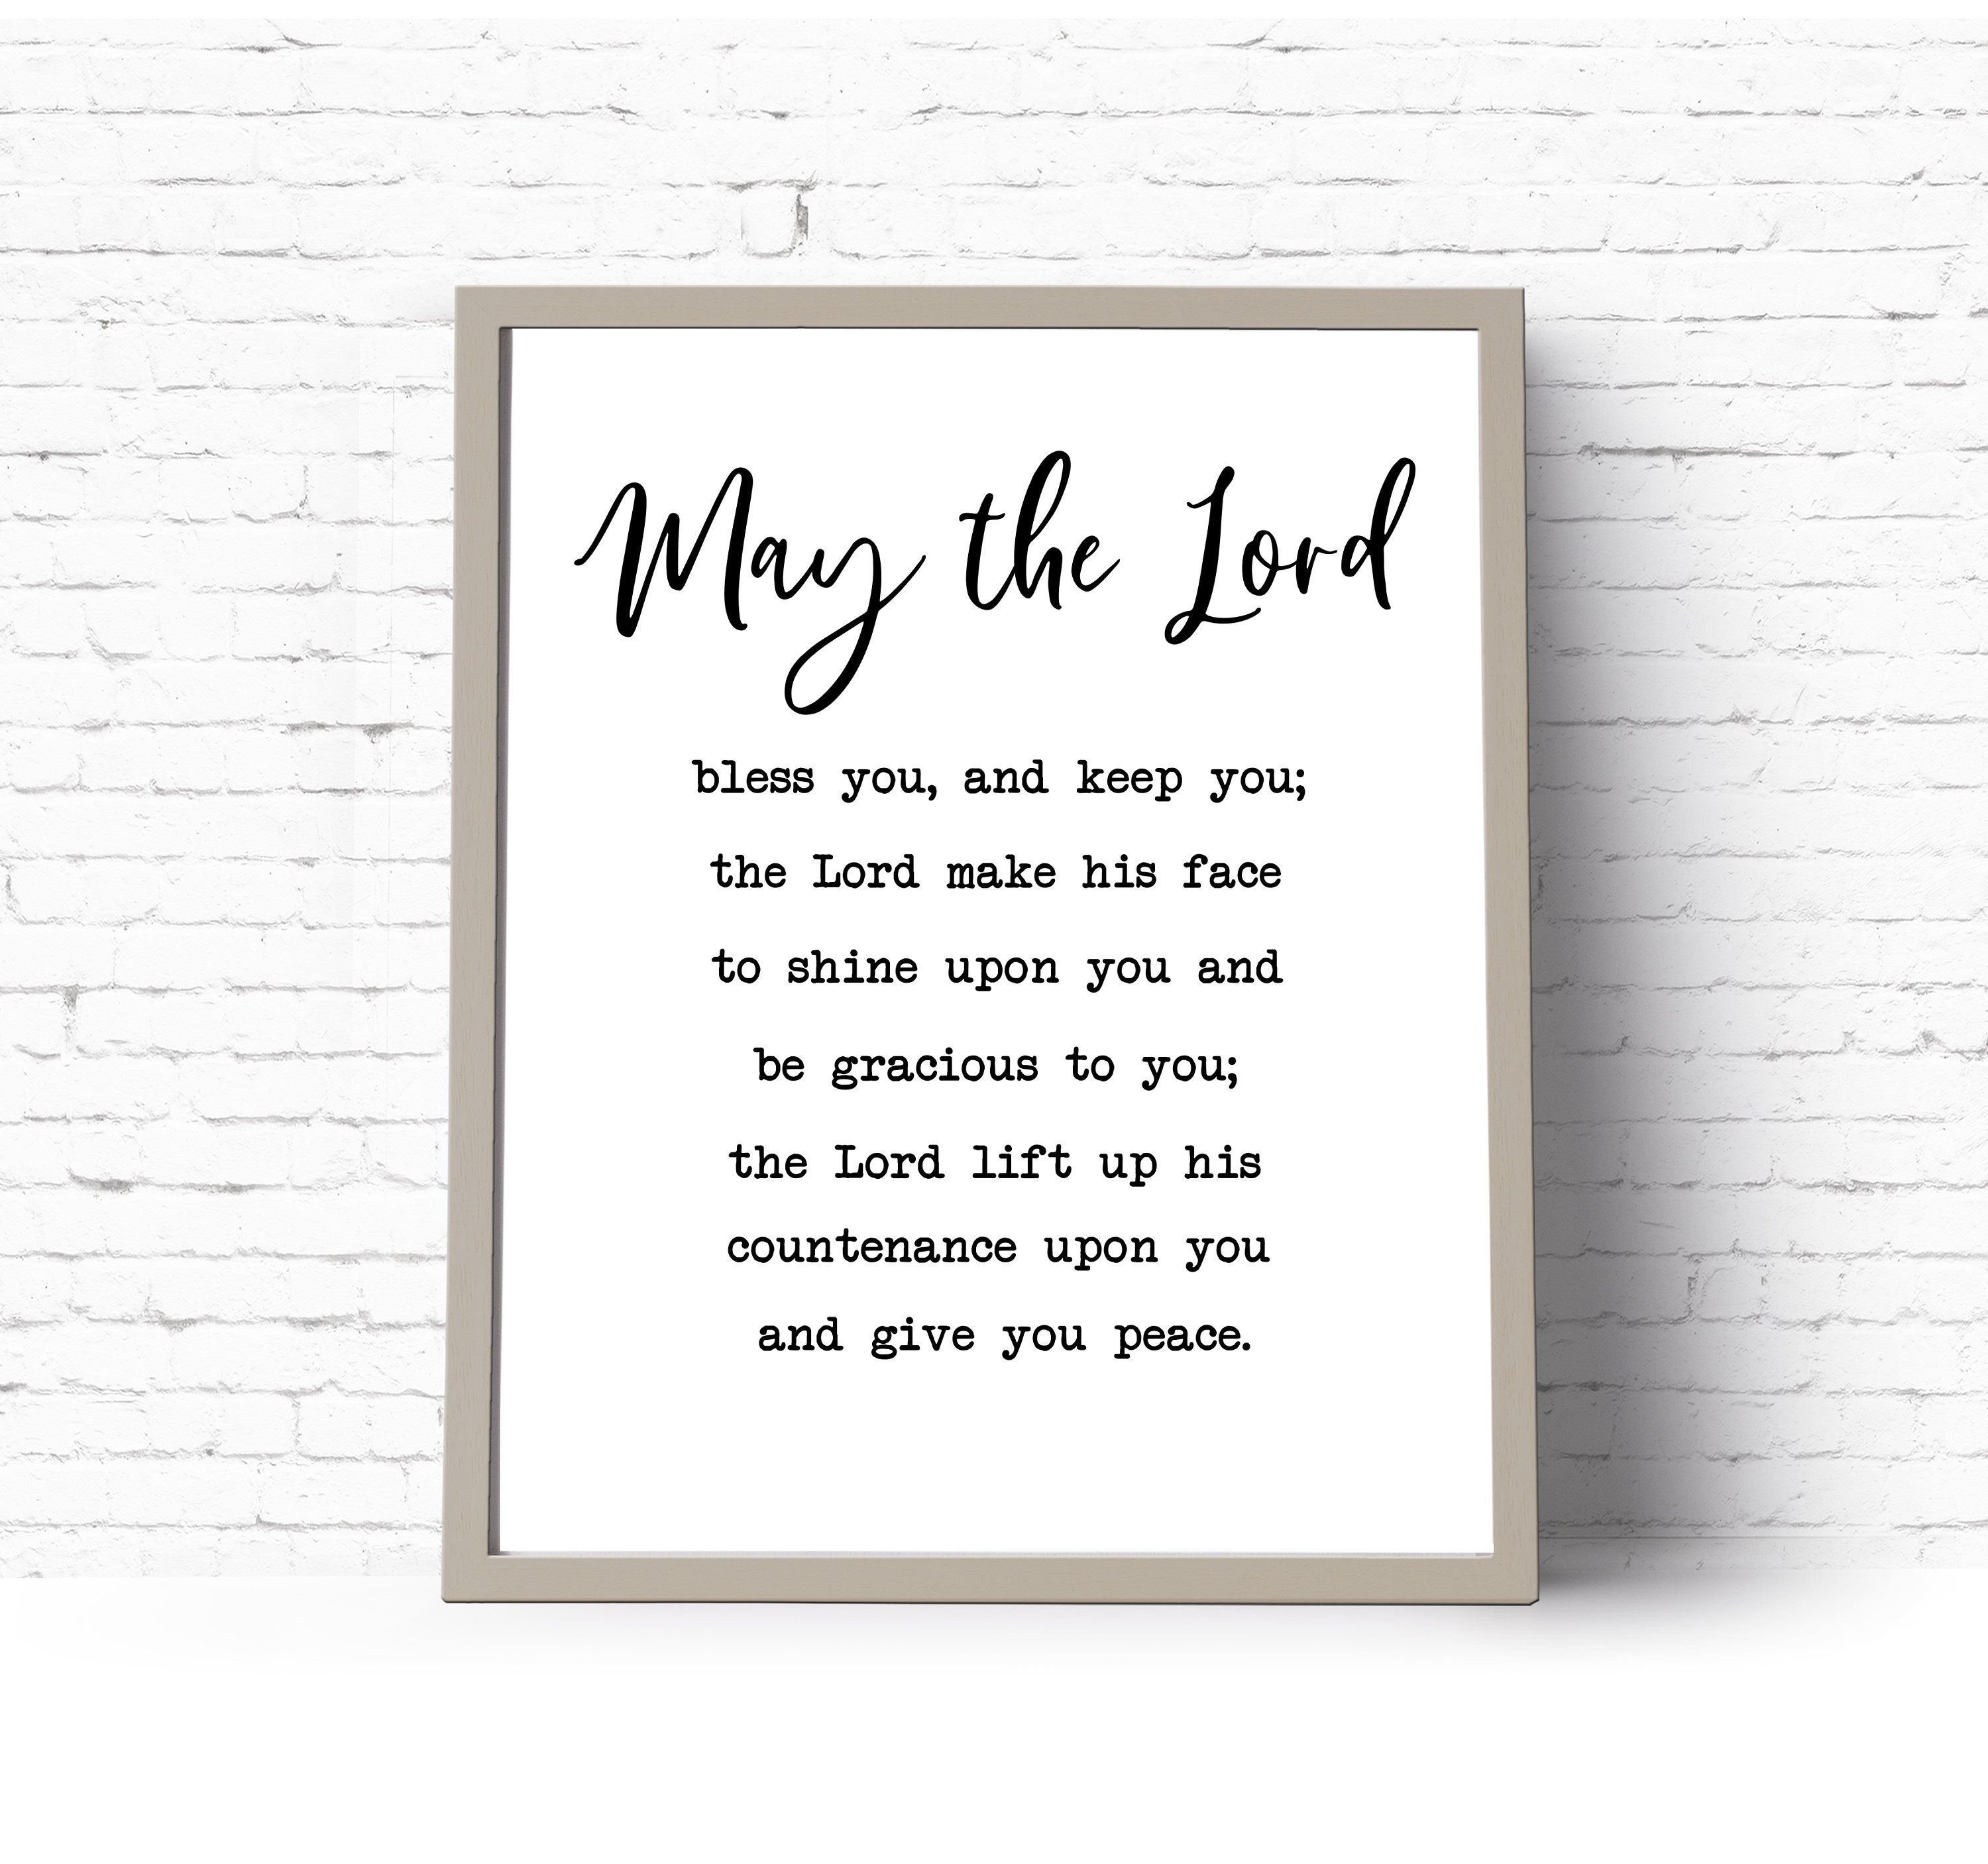 May the Lord
bless you, and keep you;
the Lord make his face
to shine upon you and
be gracious to you;
the Lord lift up his
countenance upon you
and give you peace.